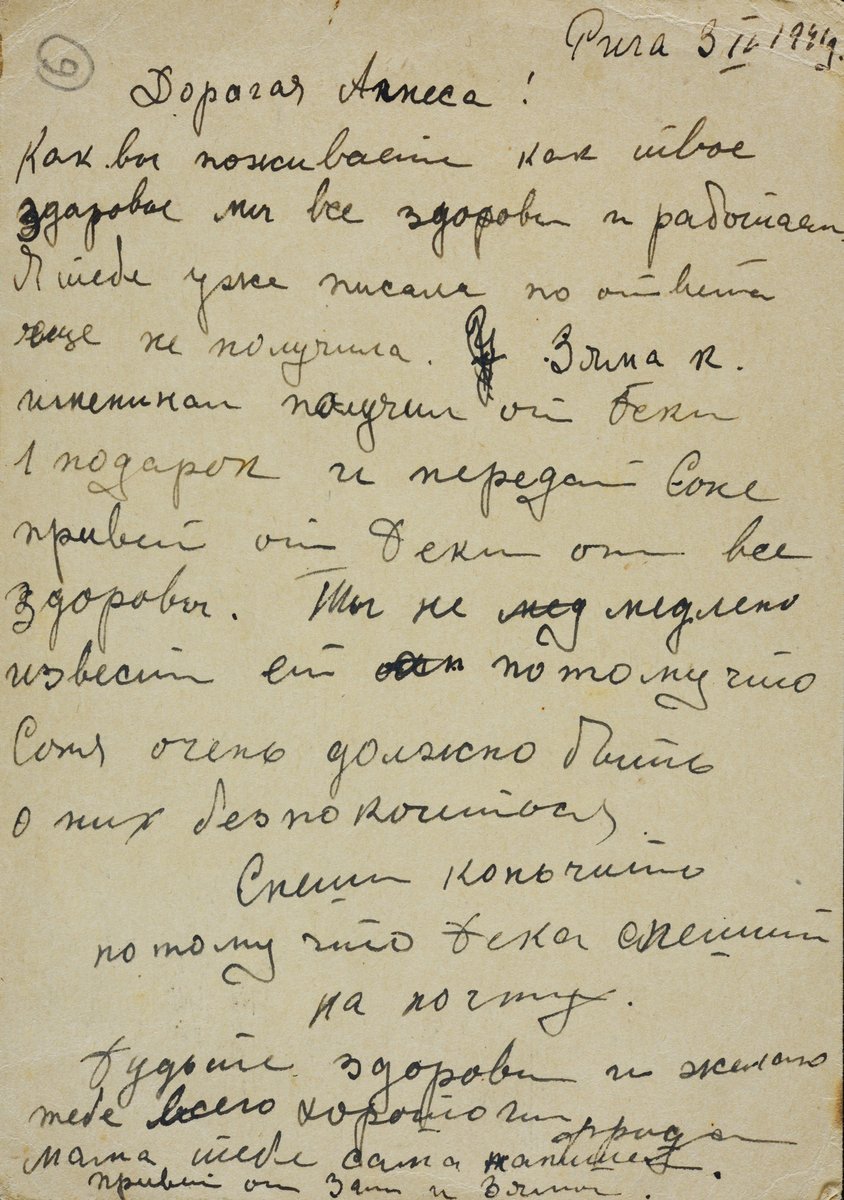 6
Рига 3 IV 1941 г.
Дорогая Аннеса!
Как вы поживаети как твое
здаровье мы все здорови и работаем.
Я тебе уже писала но ответа
еще не получила. Зяма к.
именинам получил от Беки
1 подарок и передай Соне
привет от Беки они все
здоровы. Ты не мед медлено
извести ей потому что
Соня очень должно быть
о них безпокоиться
Спешу коньчить
потому что Бека спешит
на почту.
Будьте здорови и желаю
тебе всего хорошого
Фрида
мама тебе сама напишет.
привет от и Зямы.